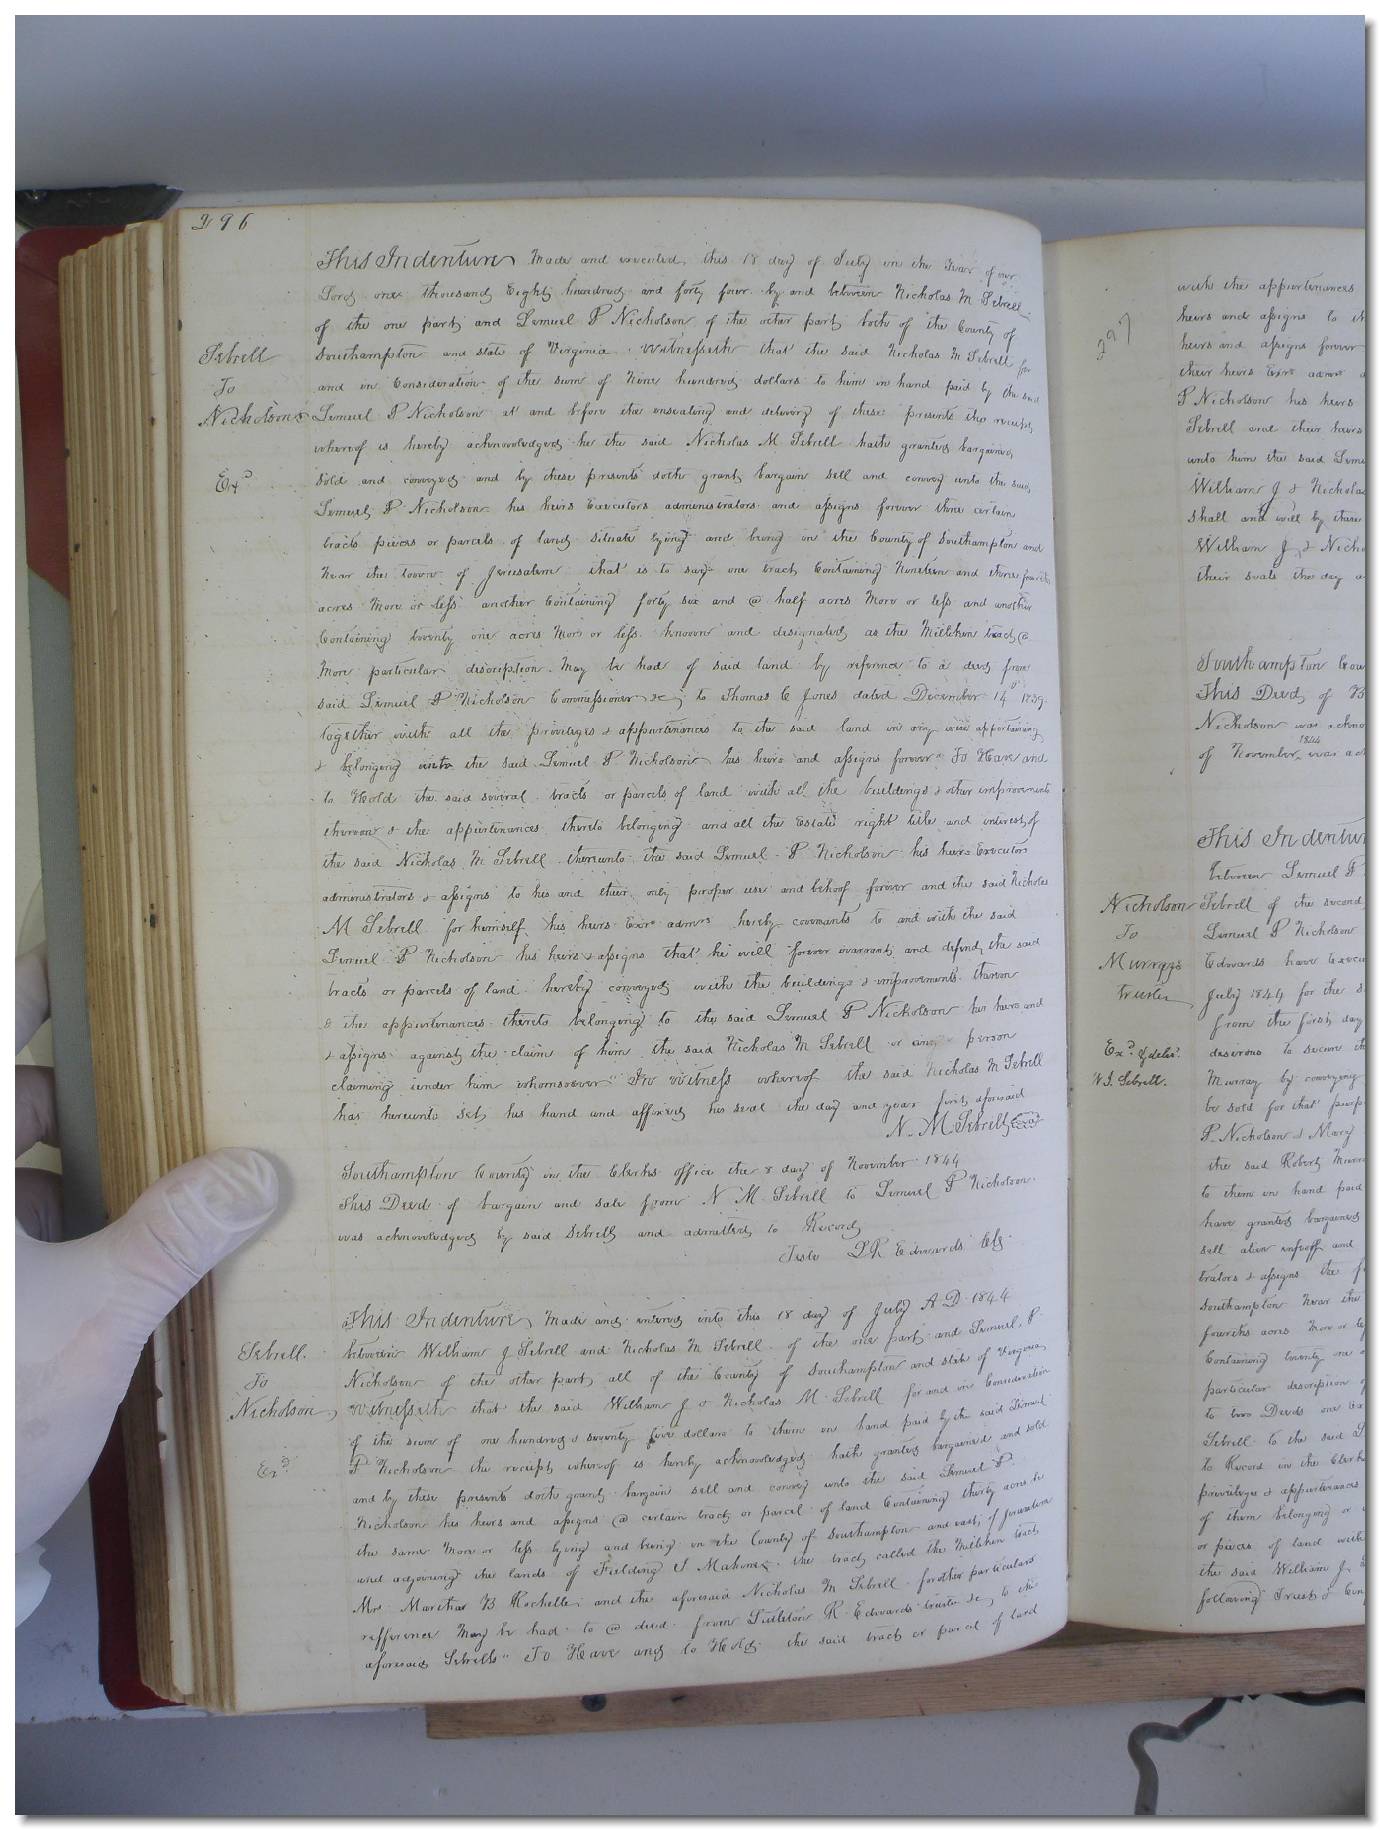 296
This Indenture Made and executed this 18 day of July in the Year of our
Lord one thousand Eight hundred and forty four by and between Nicholas M Sebrell
of the one part and Lemuel P Nicholson of the other part both of the County of
Sebrell
Southampton and state of Virginia Witnesseth that the said Nicholas M Sebrell for
To
and in Consideration of the sum of Nine hundred dollars to him in hand paid by the said
Nicholson
Lemuel P Nicholson at and before the ensealing and delivery of these presents the receipt
whereof is hereby acknowledged he the said Nicholas M Sebrell hath granted bargained
Exd
Sold and conveyed and by these presents doth grant bargain sell and convey unto the said
Lemuel P Nicholson his heirs Executors administrators and assigns forever three certain
tracts pieces or parcels of land situate lying and being in the County of Southampton and
Near the town of Jerusalem that is to say one tract Containing Nineteen and three fourths
acres More or less another Containing forty six and @ half acres More or less and another
Containing twenty one acres More or less known and designated as the Milliken tract @
More particular description May be had of said land by reference to a deed from
said Lemuel P Nicholson Commissioner &c to Thomas C Jones dated December 14th 1839
together with all the privileges & appurtenances to the said land in any wise appertaining
& belonging unto the said Lemuel P Nicholson his heirs and assigns forever" To Have and
to Hold the said several tracts or parcels of land with all the buildings & other improvements
thereon & the appurtenances thereto belonging and all the Estate right title and interest of
the said Nicholas M Sebrell thereunto the said Lemuel P Nicholson his heirs Executors
administrators & assigns to his and their only proper use and behoof forever and the said Nicholas
M Sebrell for himself his heirs Exors admrs hereby covenants to and with the said
Lemuel P Nicholson his heirs & assigns that he will forever warrant and defend the said
tracts or parcels of land hereby conveyed with the buildings & improvements thereon
& the appurtenances thereto belonging to the said Lemuel P Nicholson his heirs and
& assigns against the claim of him the said Nicholas M Sebrell or any person
claiming under him whomsoever" In Witness whereof the said Nicholas M Sebrell
has hereunto set his hand and affixed his seal the day and year first aforesaid
N. M Sebrell Seal
Southampton County in the Clerks office the 8 day of November 1844
This Deed of bargain and sale from N M Sebrell to Lemuel P Nicholson
was acknowledged by said Sebrell and admitted to Record
Teste L R Edwards Clk
This Indenture Made and entered into this 18 day of July A D 1844
Sebrell
between William J Sebrell and Nicholas M Sebrell of the one part and Lemuel P
To
Nicholson of the other part all of the County of Southampton and state of Virginia
Nicholson
Witnesseth that the said William J & Nicholas M Sebrell for and in Consideration
of the sum of one hundred & seventy five dollars to them in hand paid by the said Lemuel
Exd
P Nicholson the receipt whereof is hereby acknowledged hath granted bargained and sold
and by these presents doth grant bargain sell and convey unto the said Lemuel P.
Nicholson his heirs and assigns @ certain tract or parcel of land Containing thirty acres be
the same More or less lying and being in the County of Southampton and east of Jerusalem
and adjoining the lands of Fielding J Mahone the tract called the Milliken tract
Mrs Marthar B Rochelle and the aforesaid Nicholas M Sebrell for other particulars
refference May be had to @ deed from Littleton R Edwards trustee &c to the
aforesaid Sebrells" To Have and to Hold the said tract or parcel of land
297
with the appurtenances
heirs and assigns to
heirs and assigns forever
their heirs Exrs admrs
P Nicholson his heirs
Sebrell and their heirs
unto him the said Lemu
William J & Nicholas
Shall and will by these
William J & Nicho
their seals the day a
Southampton Cou
This Deed of B
Nicholson was ackno
1844
of November was ad
This Indentur
between Lemuel P
Nicholson
Sebrell of the second
To
Lemuel P Nicholson
Murray
Edwards have Execu
trustee
July 1844 for the s
from the first day
Exd & deld
desirous to secure th
W.J. Sebrell.
Murray by conveying
be sold for that purp
P. Nicholson & Mary
the said Robert Murra
to them in hand paid
have granted bargained
sell alien enfeoff and
trators & assigns the f
Southampton Near the
fourths acres More or le
Containing twenty one
particular description of
to two Deeds one
Sebrell to the said
to Record in the Clerk
privileges & appurtenances
of them belonging or
or pieces of land with
the said William J.
following Trust & Con